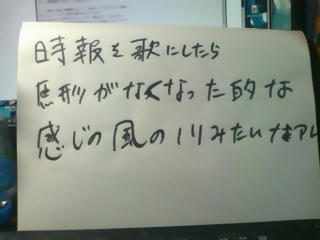 時報を歌にしたら
原形がなくなった的な
感じの風のノリみたいなアレ